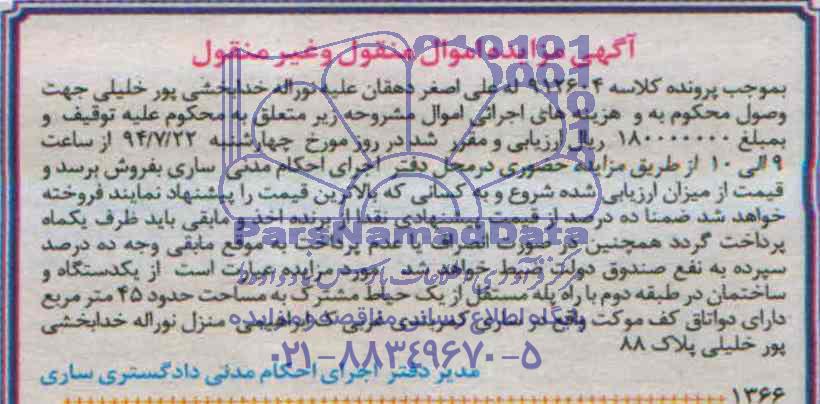 آگهی مزایده اموال منقول وغیر منقول
بموجب پرونده کلاسه ۹۱۲۶۰۴ له علی اصغر دهقان علیه نوراله خدابخشی پور خلیلی جهت
وصول محکوم به و هزینه های اجرائی اموال مشروحه زیر متعلق به محکوم علیه توقیف و
بمبلغ ۱۸۰۰۰۰۰۰۰ ریال ارزیابی و مقرر شد در روز مورخ چهارشنبه ۹۴/۷/۲۲ از ساعت
۹ الی ۱۰ از طریق مزایده حضوری درمحل دفتر اجرای احکام مدنی ساری بفروش برسد و
قیمت از میزان ارزیابی شده شروع و به کسانی که بالاترین قیمت را پیشنهاد نمایند فروخته
خواهد شد ضمنا ده درصد از قیمت پیشنهادی نقدا از برنده اخذ و مابقی باید ظرف یکماه
پرداخت گردد همچنین در صورت انصراف یا عدم پرداخت به موقع مابقی وجه ده درصد
سپرده به نفع صندوق دولت ضبط خواهد شد مورد مزایده عبارت است از یکدستگاه و
ساختمان در طبقه دوم با راه پله مستقل از یک حیاط مشترک به مساحت حدود ۴۵ متر مربع
دارای دواتاق کف موکت واقع در ساری کمربندی غربی منزل نوراله خدابخشی
پور خلیلی پلاک ۸۸
مدیر دفتر اجرای احکام مدنی دادگستری ساری
۱۳۶۶
ParsNamadData
پایگاه اطلاع رسانی مناقصه و مزایده
۰۲۱-۸۸۳۴۹۶۷۰-۵